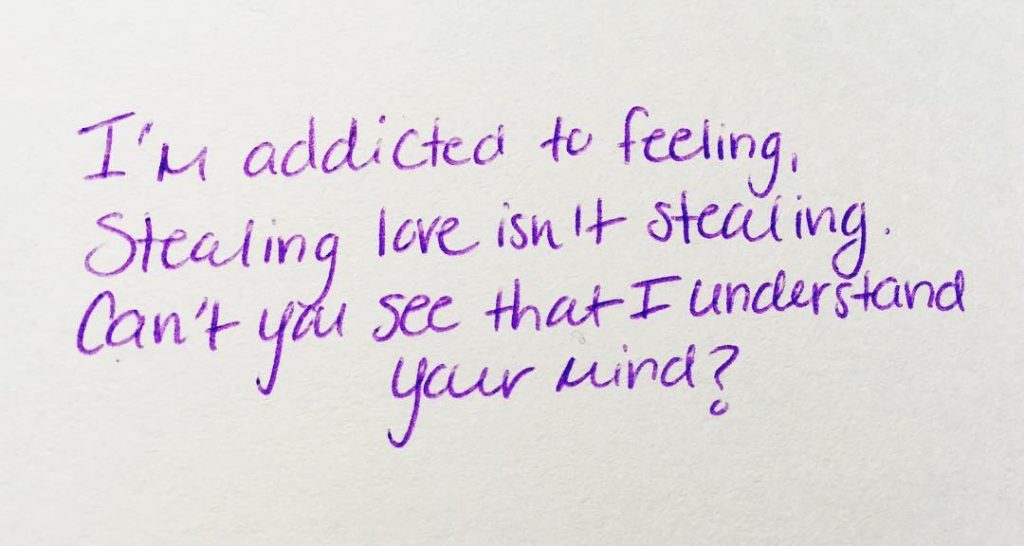 I'm addicted to feeling,
Stealing love isn't stealing.
Can't you see that I understand
your mind?